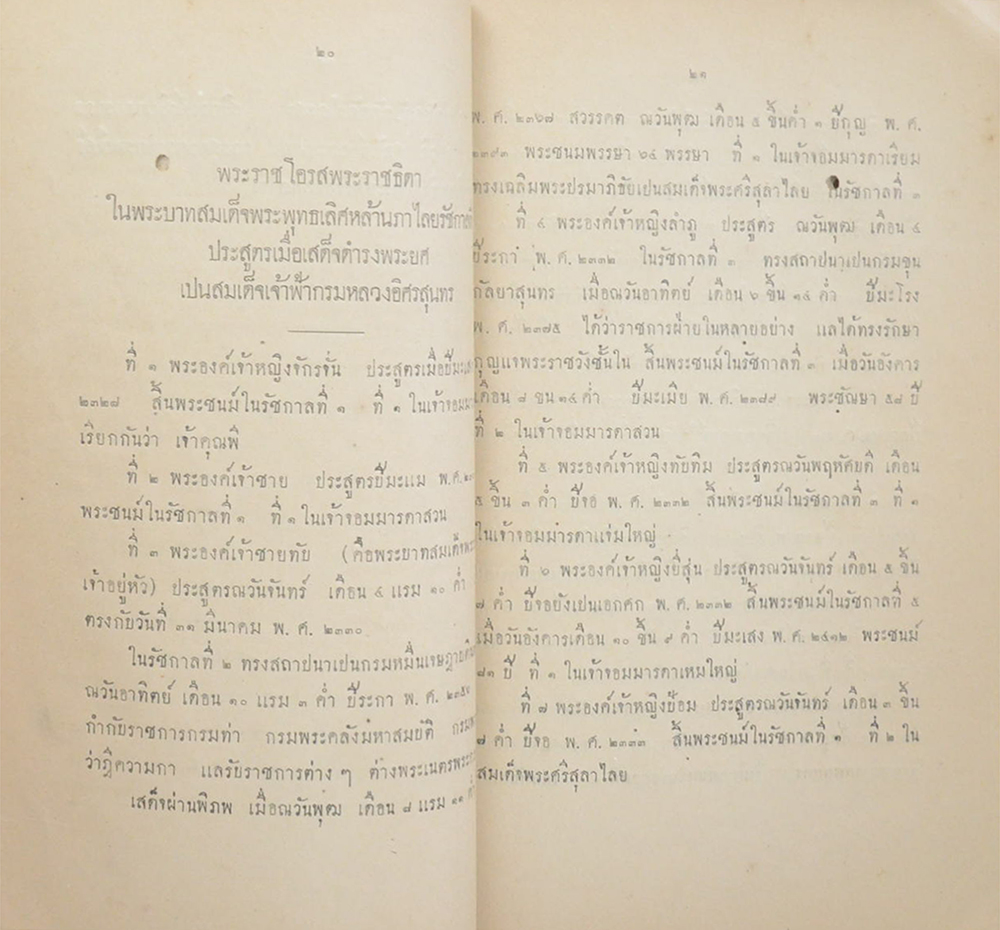 ๒๐
พระราชโอรสพระราชธิดา
ในพระบาทสมเด็จพระพุทธเลิศหล้านภาไลยรัชกาลที่
ประสูตรเมื่อเสด็จดำรงพระยศ
เปนสมเด็จเจ้าฟ้ากรมหลวงอิศรสุนทร
ที่ ๑ พระองค์เจ้าหญิงจักรจั่น ประสูตรเมื่อปีมะเส
๒๓๒๘ สิ้นพระชนม์ในรัชกาลที่ ๑ ที่ ๑ ในเจ้าจอมมา
เรียกกันว่า เจ้าคุณพี
ที่ ๒ พระองค์เจ้าชาย ประสูตรปีมะแม พ.ศ.
พระชนม์ในรัชกาลที่ ๑ ที่ ๑ ในเจ้าจอมมารดาสวน
ที่ ๓ พระองค์เจ้าชายทับ (คือพระบาทสมเด็จพระ
เจ้าอยู่หัว) ประสูตรณวันจันทร์ เดือน ๔ แรม ๑๐ ค่ำ
ตรงกับวันที่ ๓๑ มีนาคม พ. ศ. ๒๓๓๐
ในรัชกาลที่ ๒ ทรงสถาปนาเปนกรมหมื่นเจษฎาบดิน
ณวันอาทิตย์ เดือน ๑๐ แรม ๓ ค่ำ ปีระกา พ. ศ. ๒๓๕๖
กำกับราชการกรมท่า กรมพระคลังมหาสมบัติ กรมพ
ว่าฎีความกา แลรับราชการต่าง ๆ ต่างพระเนตรพระก
เสด็จผ่านพิภพ เมื่อณวันพุฒ เดือน ๘ แรม ๑๑ ค่ำ
๒๑
พ. ศ. ๒๓๖๗ สวรรคต ณวันพุฒ เดือน ๕ ขึ้นค่ำ ๑ ปีกุญ พ. ศ.
๒๓๙๓ พระชนมพรรษา ๖๔ พรรษา ที่ ๑ ในเจ้าจอมมารดาเรียม
ทรงเฉลิมพระปรมาภิธัยเปนสมเด็จพระศรีสุลาไลย ในรัชกาลที่ ๓
ที่ ๔ พระองค์เจ้าหญิงลำภู ประสูตร ณวันพุฒ เดือน ๔
ปีระกา พ. ศ. ๒๓๓๒ ในรัชกาลที่ ๓ ทรงสถาปนาเปนกรมขุน
กัลยาสุนทร เมื่อณวันอาทิตย์ เดือน ๖ ขึ้น ๑๔ ค่ำ ปีมะโรง
พ. ศ. ๒๓๗๕ ได้ว่าราชการฝ่ายในหลายอย่าง แลได้ทรงรักษา
กุญแจพระราชวังชั้นใน สิ้นพระชนม์ในรัชกาลที่ ๓ เมื่อวันอังคาร
เดือน ๘ ขน ๑๔ ค่ำ ปีมะเมีย พ. ศ. ๒๓๘๙ พระชัณษา ๕๘ ปี
ที่ ๒ ในเจ้าจอมมารดาสวน
ที่ ๕ พระองค์เจ้าหญิงทับทิม ประสูตรณวันพฤหัศบดี เดือน
๕ ขึ้น ๓ ค่ำ ปีจอ พ. ศ. ๒๓๓๒ สิ้นพระชนม์ในรัชกาลที่ ๓ ที่ ๑
ในเจ้าจอมมารดาแจ่มใหญ่
ที่ ๖ พระองค์เจ้าหญิงยี่สุ่น ประสูตรณวันจันทร์ เดือน ๕ ขึ้น
๗ ค่ำ ปีจอยังเปนเอกศก พ. ศ. ๒๓๓๒ สิ้นพระชนม์ในรัชกาลที่ ๕
เมื่อวันอังคารเดือน ๑๐ ขึ้น ๙ ค่ำ ปีมะเสง พ. ศ. ๒๔๑๒ พระชนม์
๘๑ ปี ที่ ๑ ในเจ้าจอมมารดาเหมใหญ่
ที่ ๗ พระองค์เจ้าหญิงป้อม ประสูตรณวันจันทร์ เดือน ๓ ขึ้น
๗ ค่ำ ปีจอ พ. ศ. ๒๓๓๓ สิ้นพระชนม์ในรัชกาลที่ ๑ ที่ ๒ ใน
สมเด็จพระศรีสุลาไลย